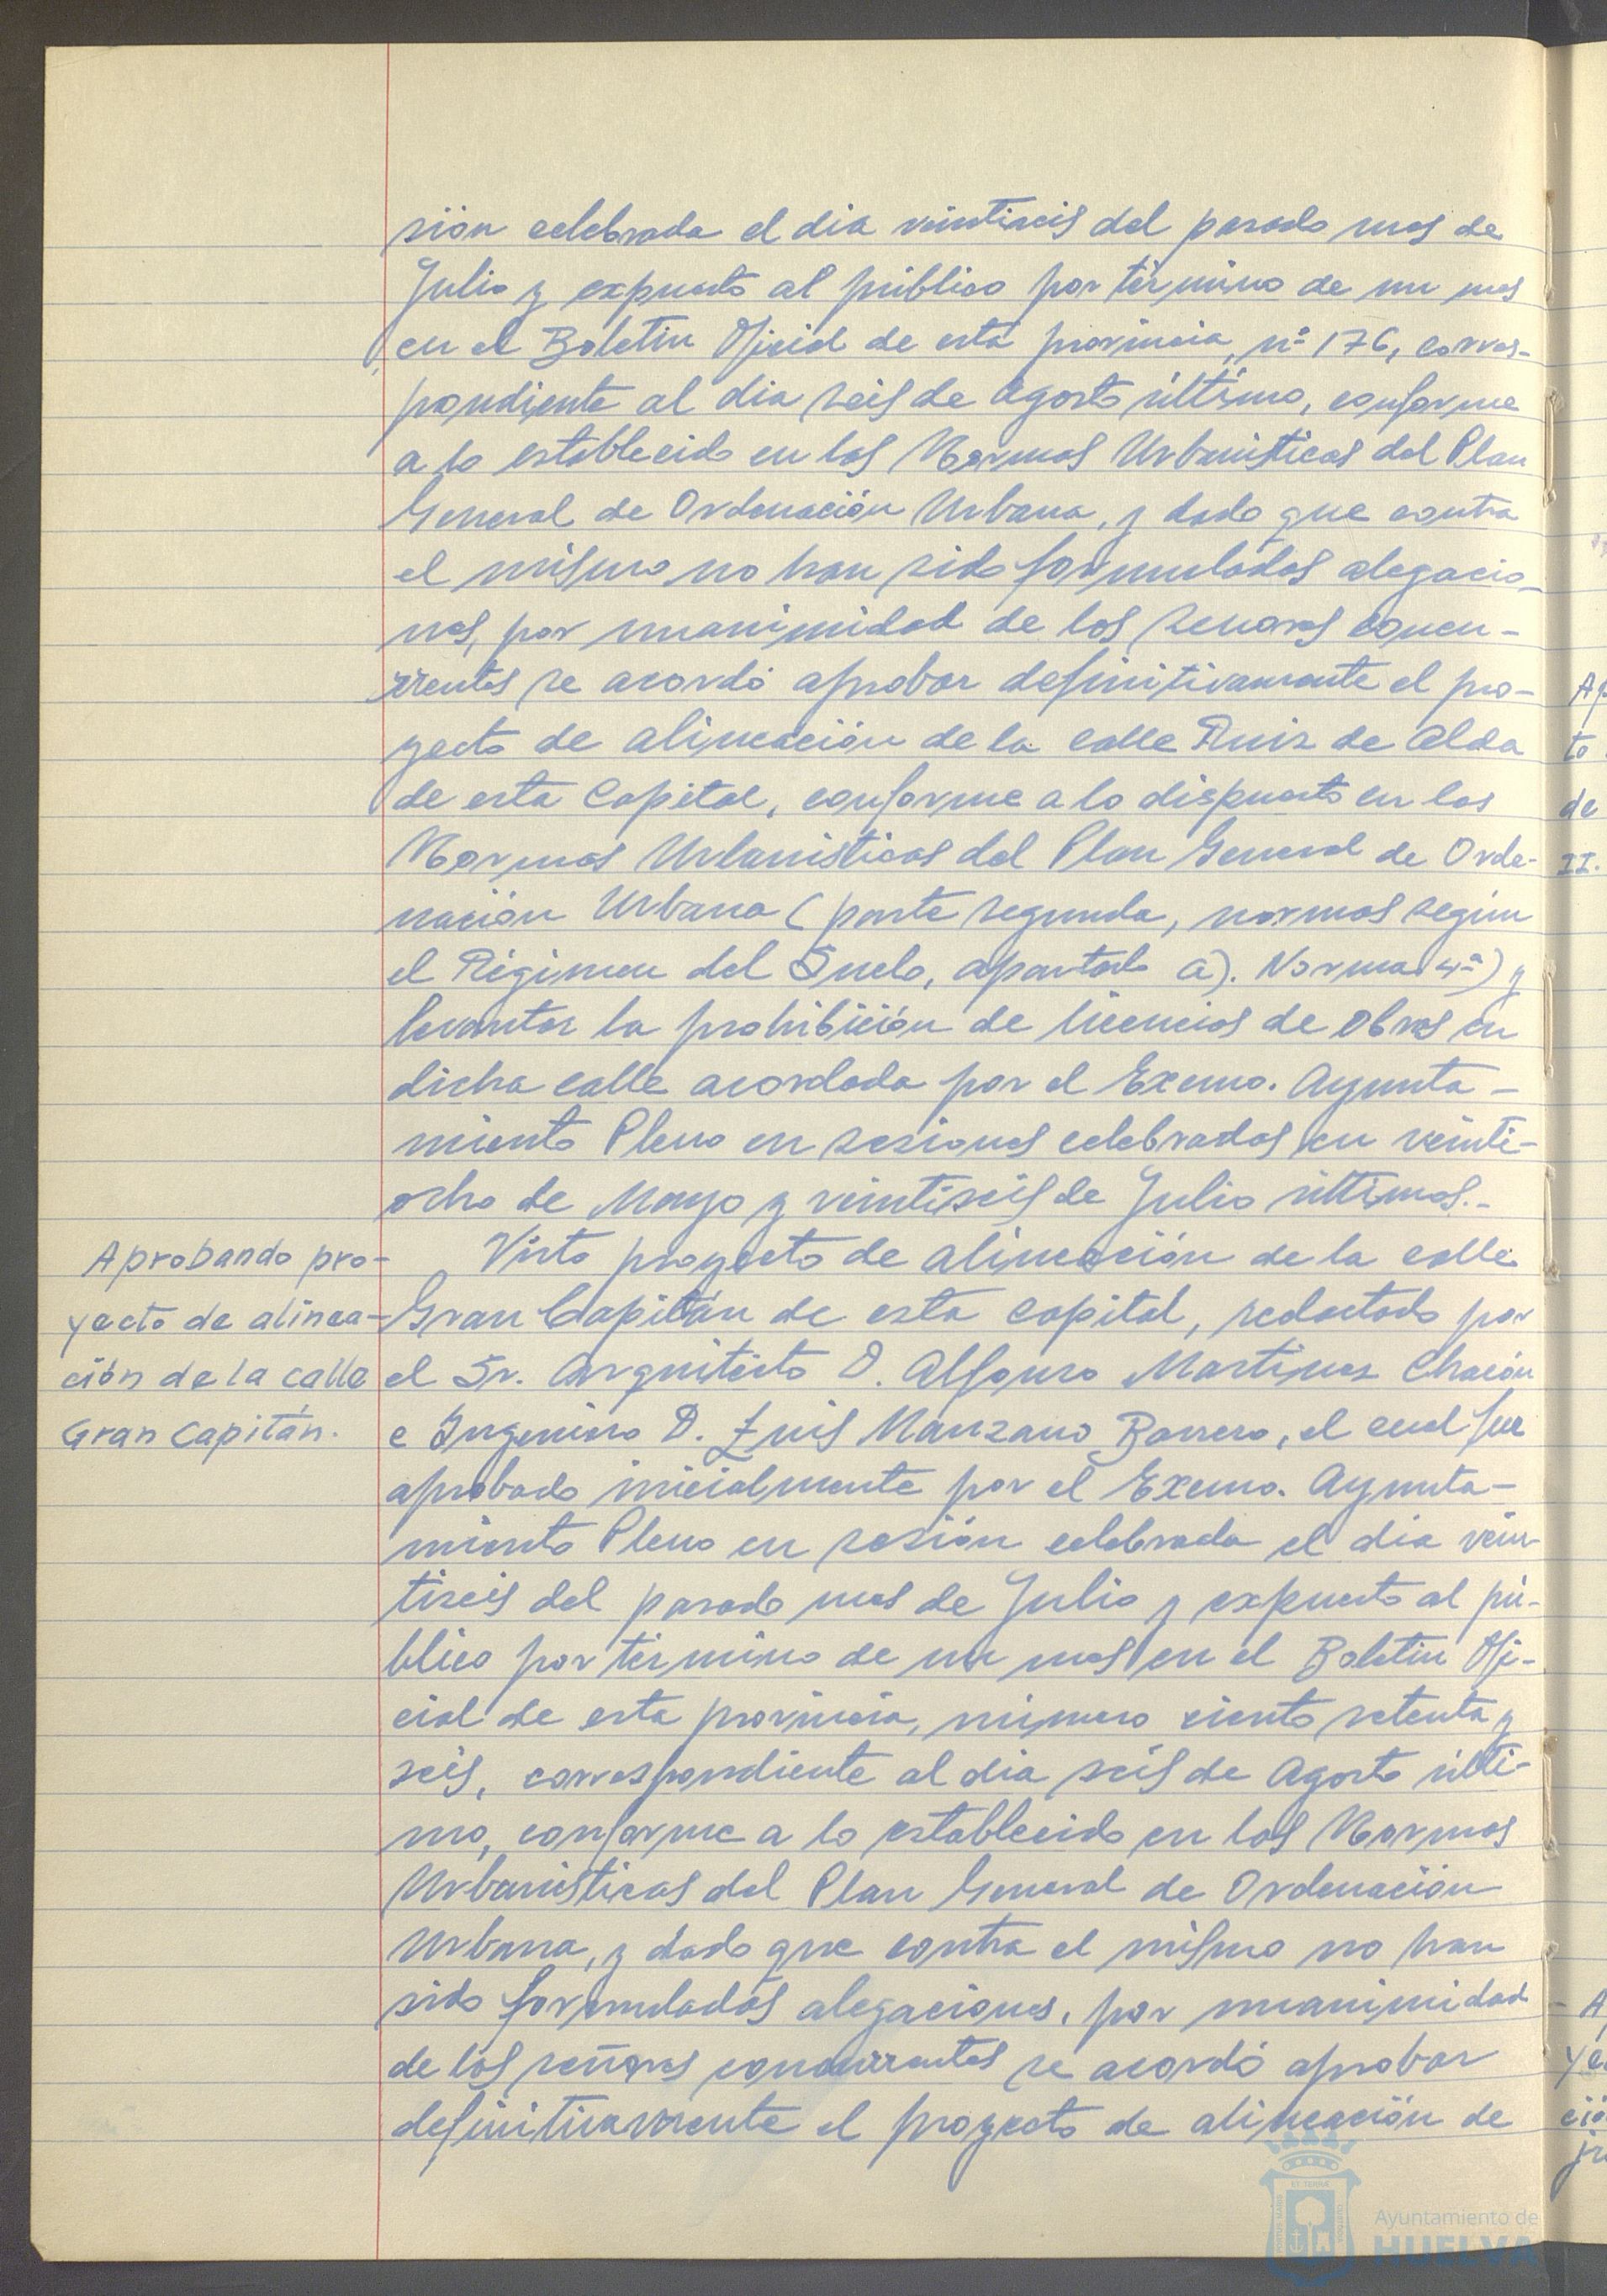 sión celebrada el dia veintiseis del pasado mes de
Julio y expuesto al público por término de un mes
en el Boletin Oficial de esta provincia, nº 176, corres-
pondiente al dia seis de Agosto último, conforme
a lo establecido en las Normas Urbanisticas del Plan
General de Ordenación Urbana, y dado que contra
el mismo no han sido formuladas alegacio-
nes, por unanimidad de los señores concu-
rrentes se acordó aprobar definitivamente el pro-
yecto de alineación de la calle Ruiz de Alda
de esta Capital, conforme a lo dispuesto en las
Normas Urbanisticas del Plan General de Orde-
nación Urbana (parte segunda, normas según
el Régimen del Suelo, apartado a). Norma 4ª) y
levantar la prohibición de licencias de obras en
dicha calle acordada por el Excmo. Ayunta-
miento Pleno en sesiones celebradas en veinti-
ocho de Mayo y veintiseis de Julio últimos.-
Aprobando pro-
yecto de alinea-
ción de la calle
Gran Capitán.
Visto proyecto de alineación de la calle
Gran Capitán de esta capital, redactado por
el Sr. Arquitecto D. Alfonso Martinez Chacón
e Ingeniero D. Luis Manzano Barrero, el cual fue
aprobado inicialmente por el Excmo. Ayunta-
miento Pleno en sesión celebrada el dia vein-
tiseis del pasado mes de Julio y expuesto al pú-
blico por término de un mes en el Boletin Ofi-
cial de esta provincia, número ciento setenta y
seis, correspondiente al dia seis de Agosto últi-
mo, conforme a lo establecido en las Normas
Urbanisticas del Plan General de Ordenación
Urbana, y dado que contra el mismo no han
sido formuladas alegaciones, por unanimidad
de los señores concurrentes se acordó aprobar
definitivamente el proyecto de alineación de
to
de
II.
Ayuntamiento de
HUELVA